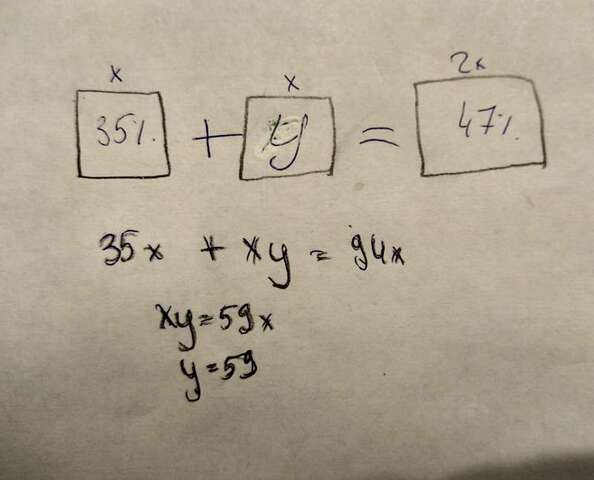 x x 2x
35% + y = 47%
35x + xy = 94x
xy = 59x
y = 59